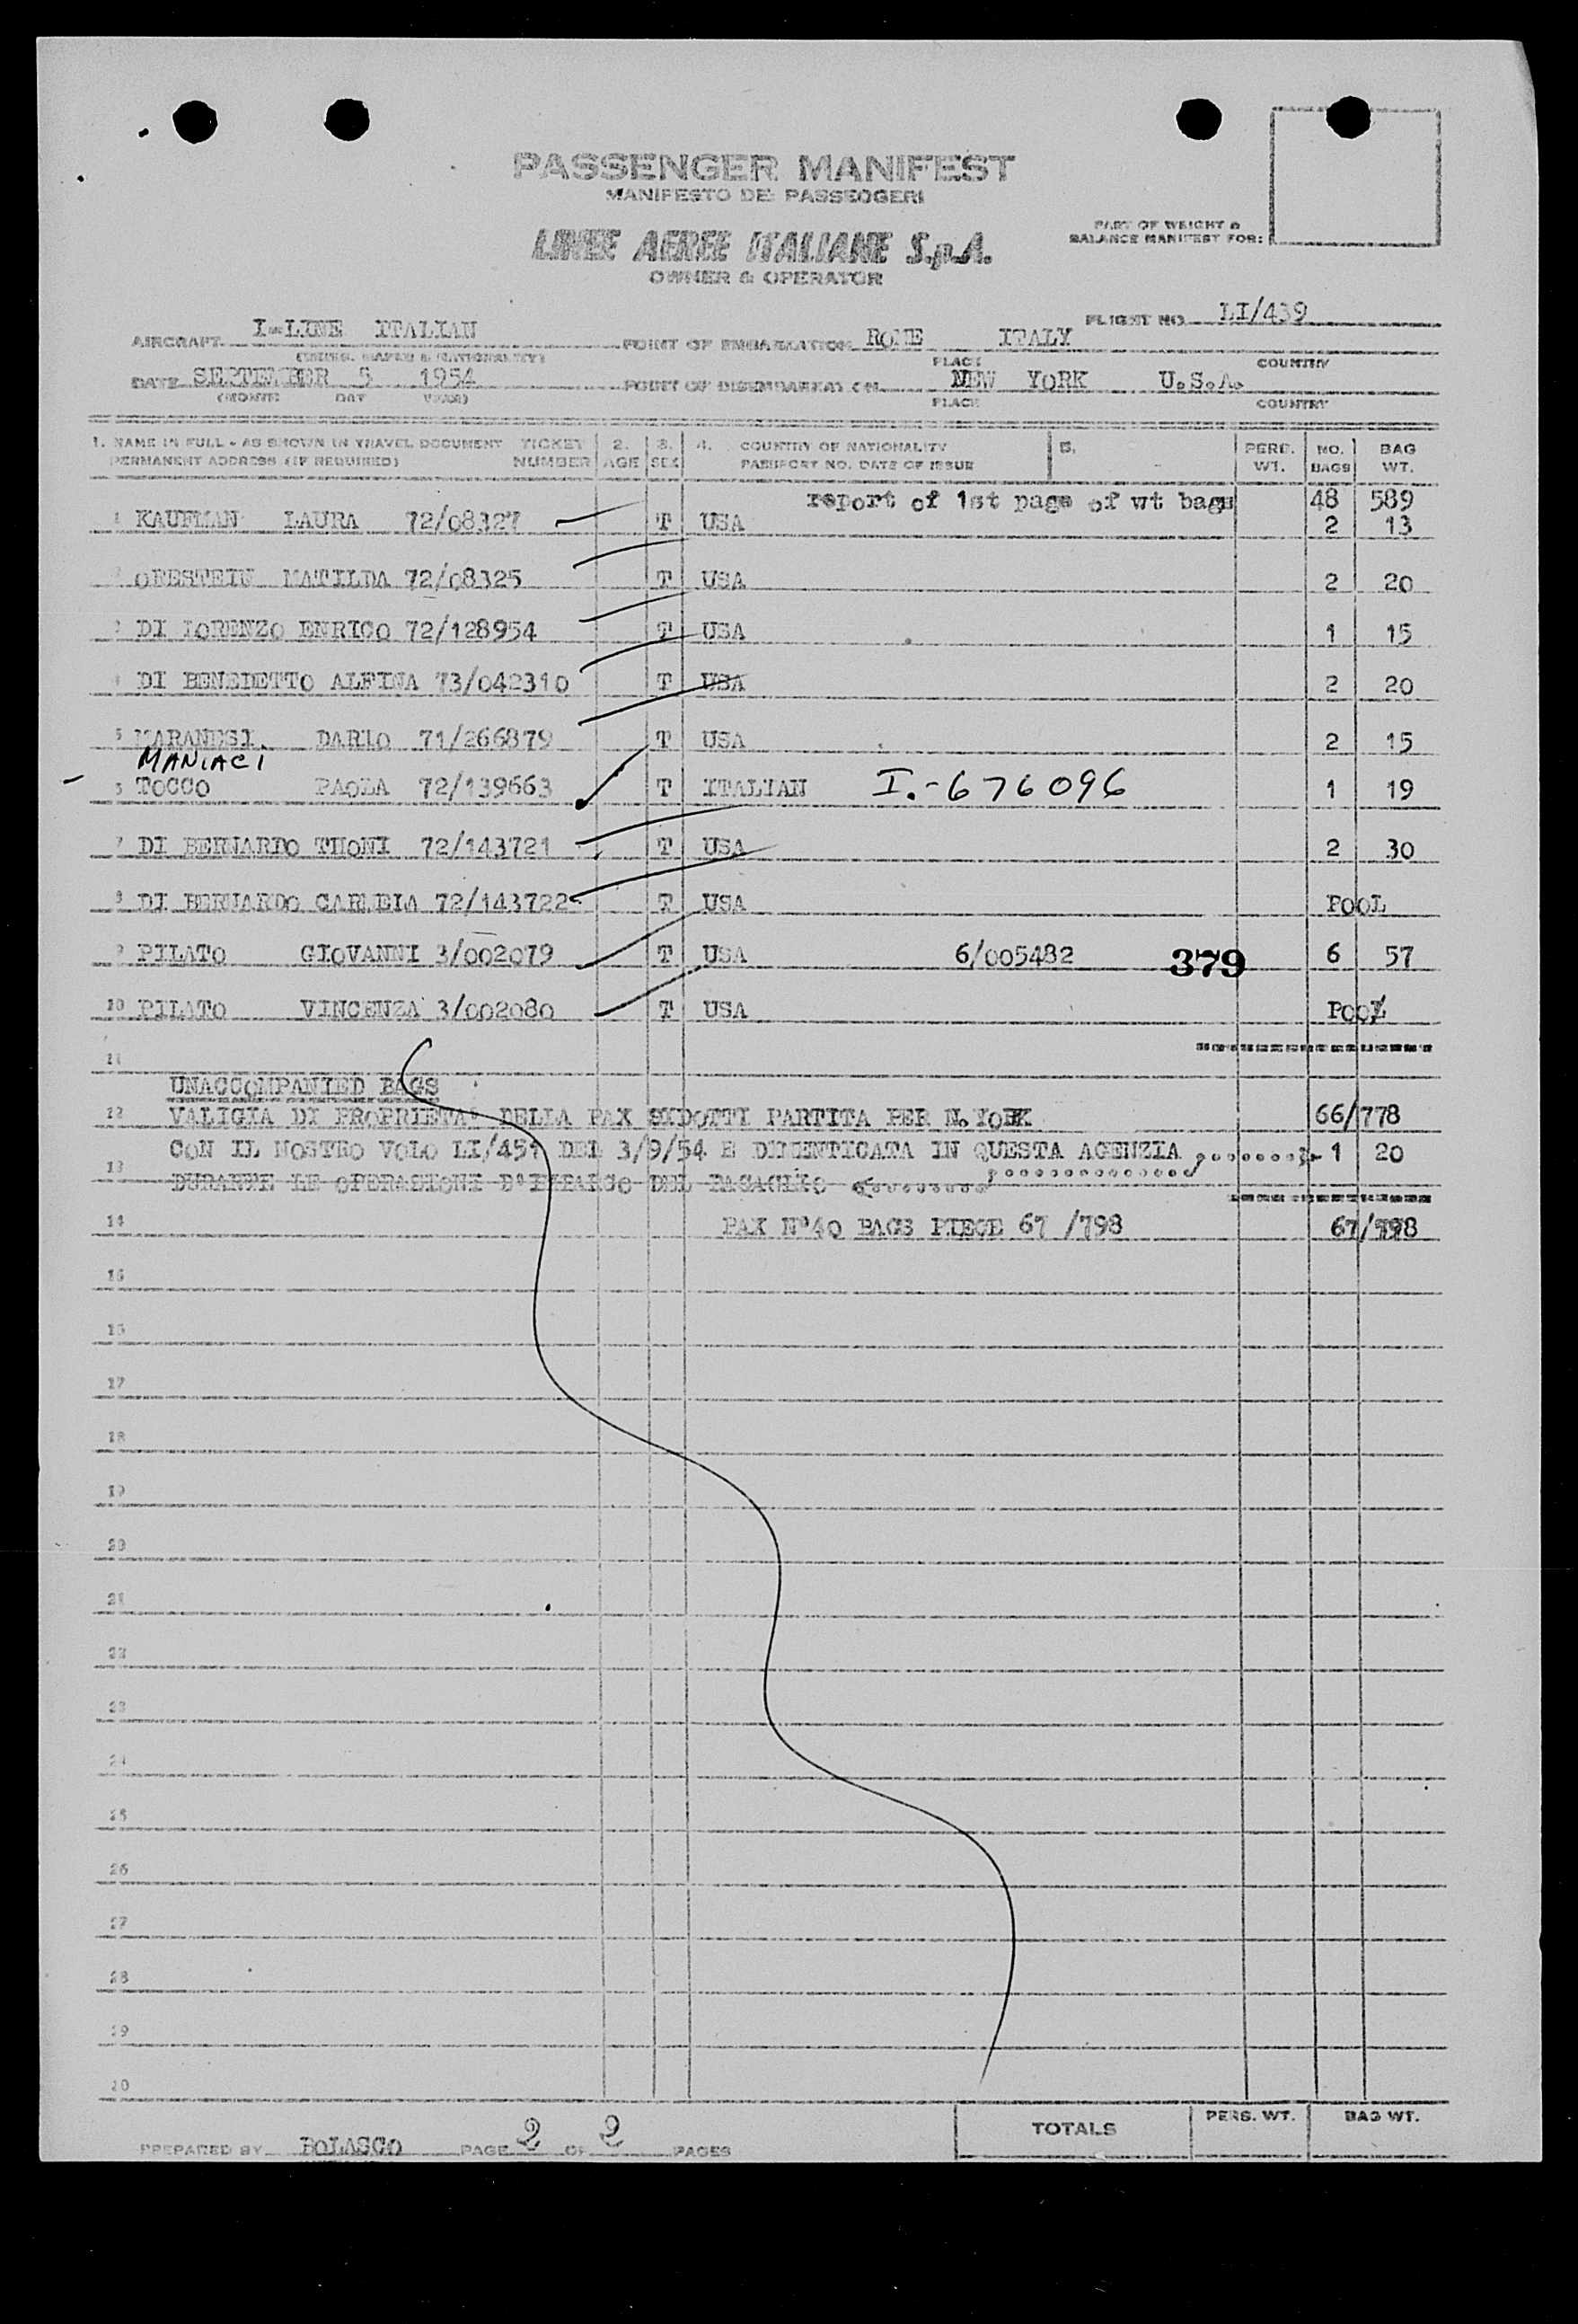 PASSENGER MANIFEST
MANIFESTO DEI PASSEGGERI
LINEE AEREE ITALIANE S.p.A.
OWNER & OPERATOR
PART OF WEIGHT &
BALANCE MANIFEST FOR:
AIRCRAFT I-LINE ITALIAN POINT OF EMBARKATION ROME ITALY FLIGHT NO. LI/439
PLACE COUNTRY
DATE SEPTEMBER 5 1954 POINT OF DISEMBARKATION NEW YORK U.S.A.
(MONTH DAY YEAR) PLACE COUNTRY
1. NAME IN FULL - AS SHOWN IN TRAVEL DOCUMENT TICKET 2. 3. 4. COUNTRY OF NATIONALITY 5. PERS. NO. BAG
PERMANENT ADDRESS (IF REQUIRED) NUMBER AGE SEX PASSPORT NO. DATE OF ISSUE WT. BAGS WT.
report of 1st page of wt bags 48 589
1 KAUFMAN LAURA 72/08327 T USA 2 13
2 MATILDA 72/08325 T USA 2 20
3 DI LORENZO ENRICO 72/128954 T USA 1 15
4 DI BENEDETTO ALFINA 73/042310 T USA 2 20
5 MARANESI DARIO 71/266879 T USA 2 15
MANIACI
TOCCO PAOLA 72/139663 T ITALIAN I.-676096 1 19
7 DI BERNARDO THONI 72/143721 T USA 2 30
8 DI BERNARDO 72/143722 T USA POOL
9 PILATO GIOVANNI 3/002079 T USA 6/005482 379 6 57
10 PILATO VINCENZA 3/002080 T USA POOL
11
UNACCOMPANIED BAGS
12 VALIGIA DI PROPRIETA' DELLA PAX SIDOTTI PARTITA PER N.YORK 66/778
CON IL NOSTRO VOLO DEL 3/9/54 E DIMENTICATA IN QUESTA AGENZIA 1 20
13 DURANTE LE OPERAZIONI D'IMBARCO DEL
14 PAX N°40 BAGS PIECE 67 /798 67/798
15
16
17
18
19
20
21
22
23
24
25
26
27
28
29
30
PREPARED BY BOLASCO PAGE 2 OF 2 PAGES TOTALS PERS. WT. BAG WT.